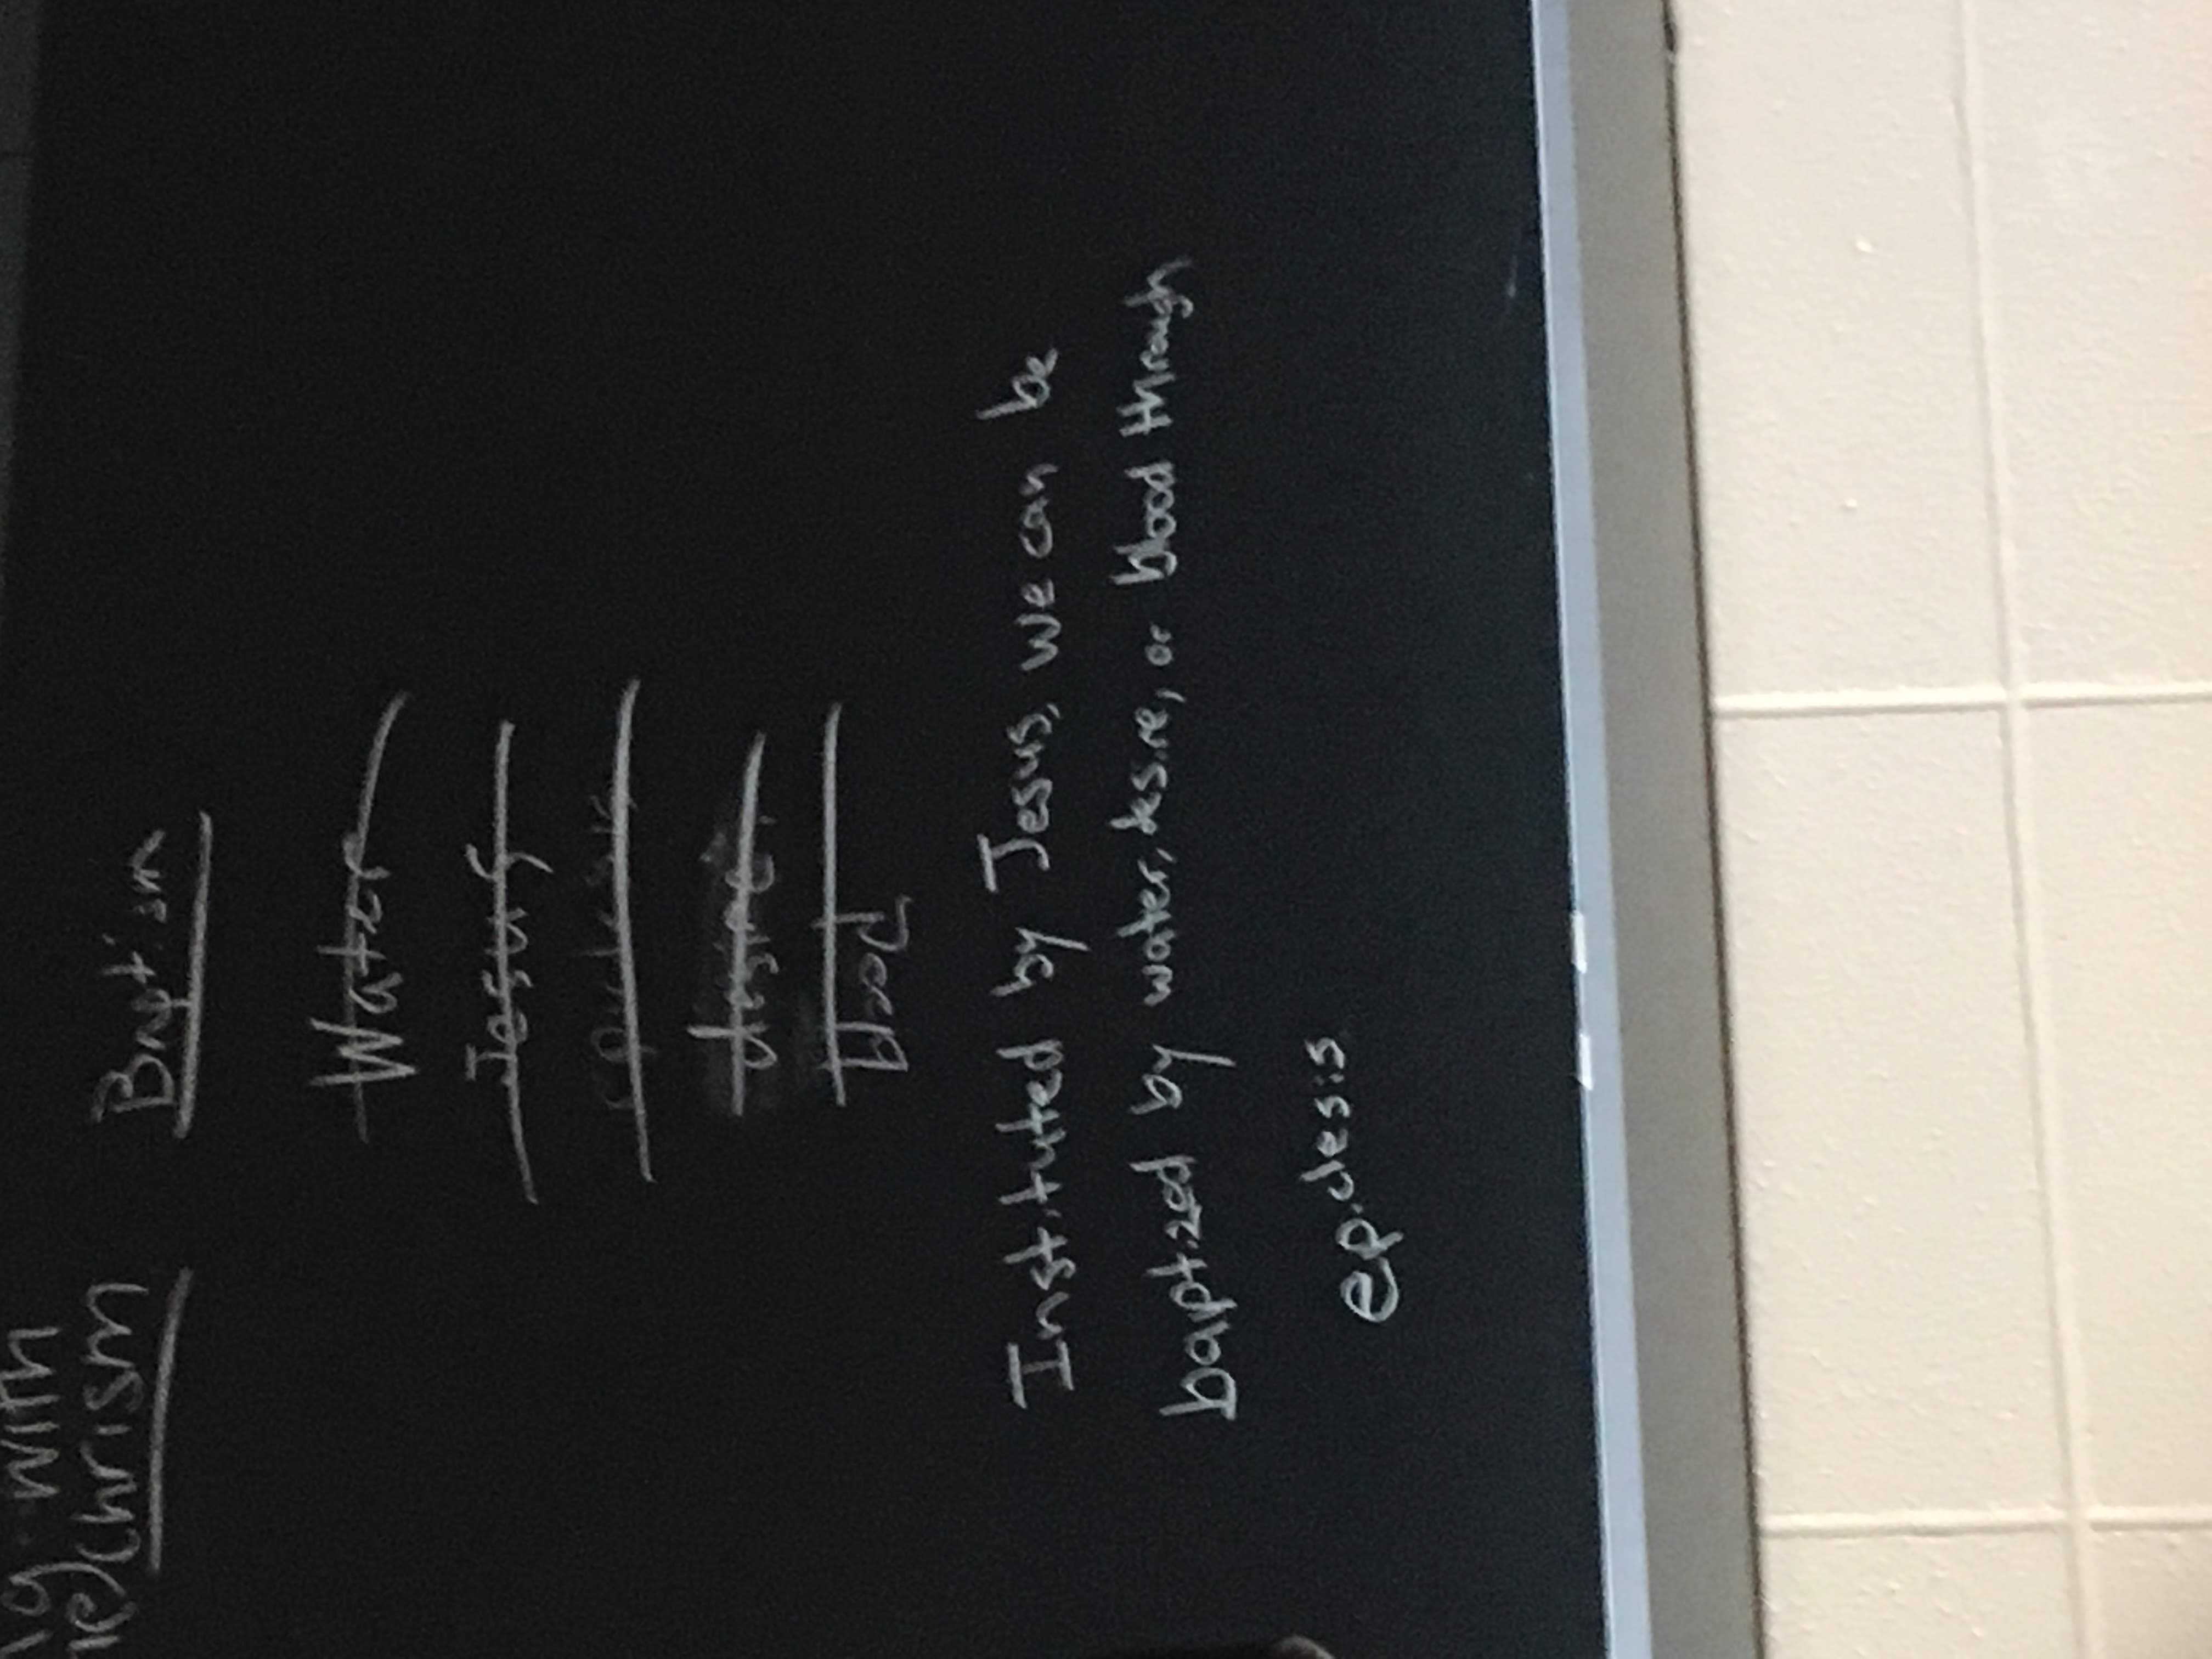 with
Chrism
Baptism
Water
Jesus
desire
blood
Instituted by Jesus, we can be
baptized by water, desire, or blood through
epiclesis